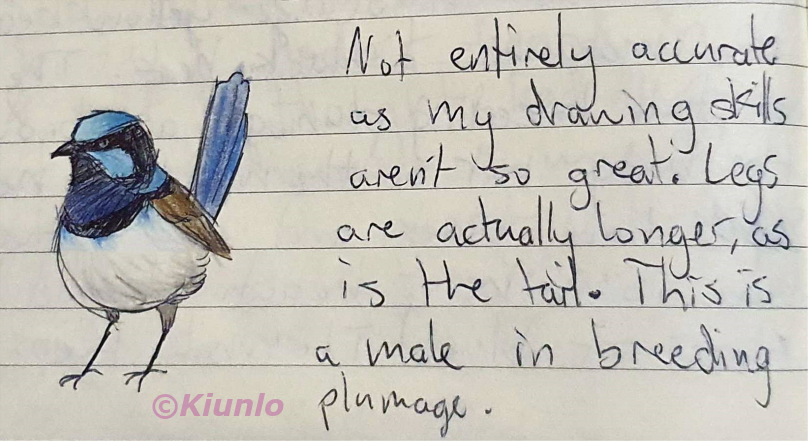 Not entirely accurate
as my drawing skills
aren't so great. Legs
are actually longer, as
is the tail. This is
a male in breeding
plumage.
©Kiunlo